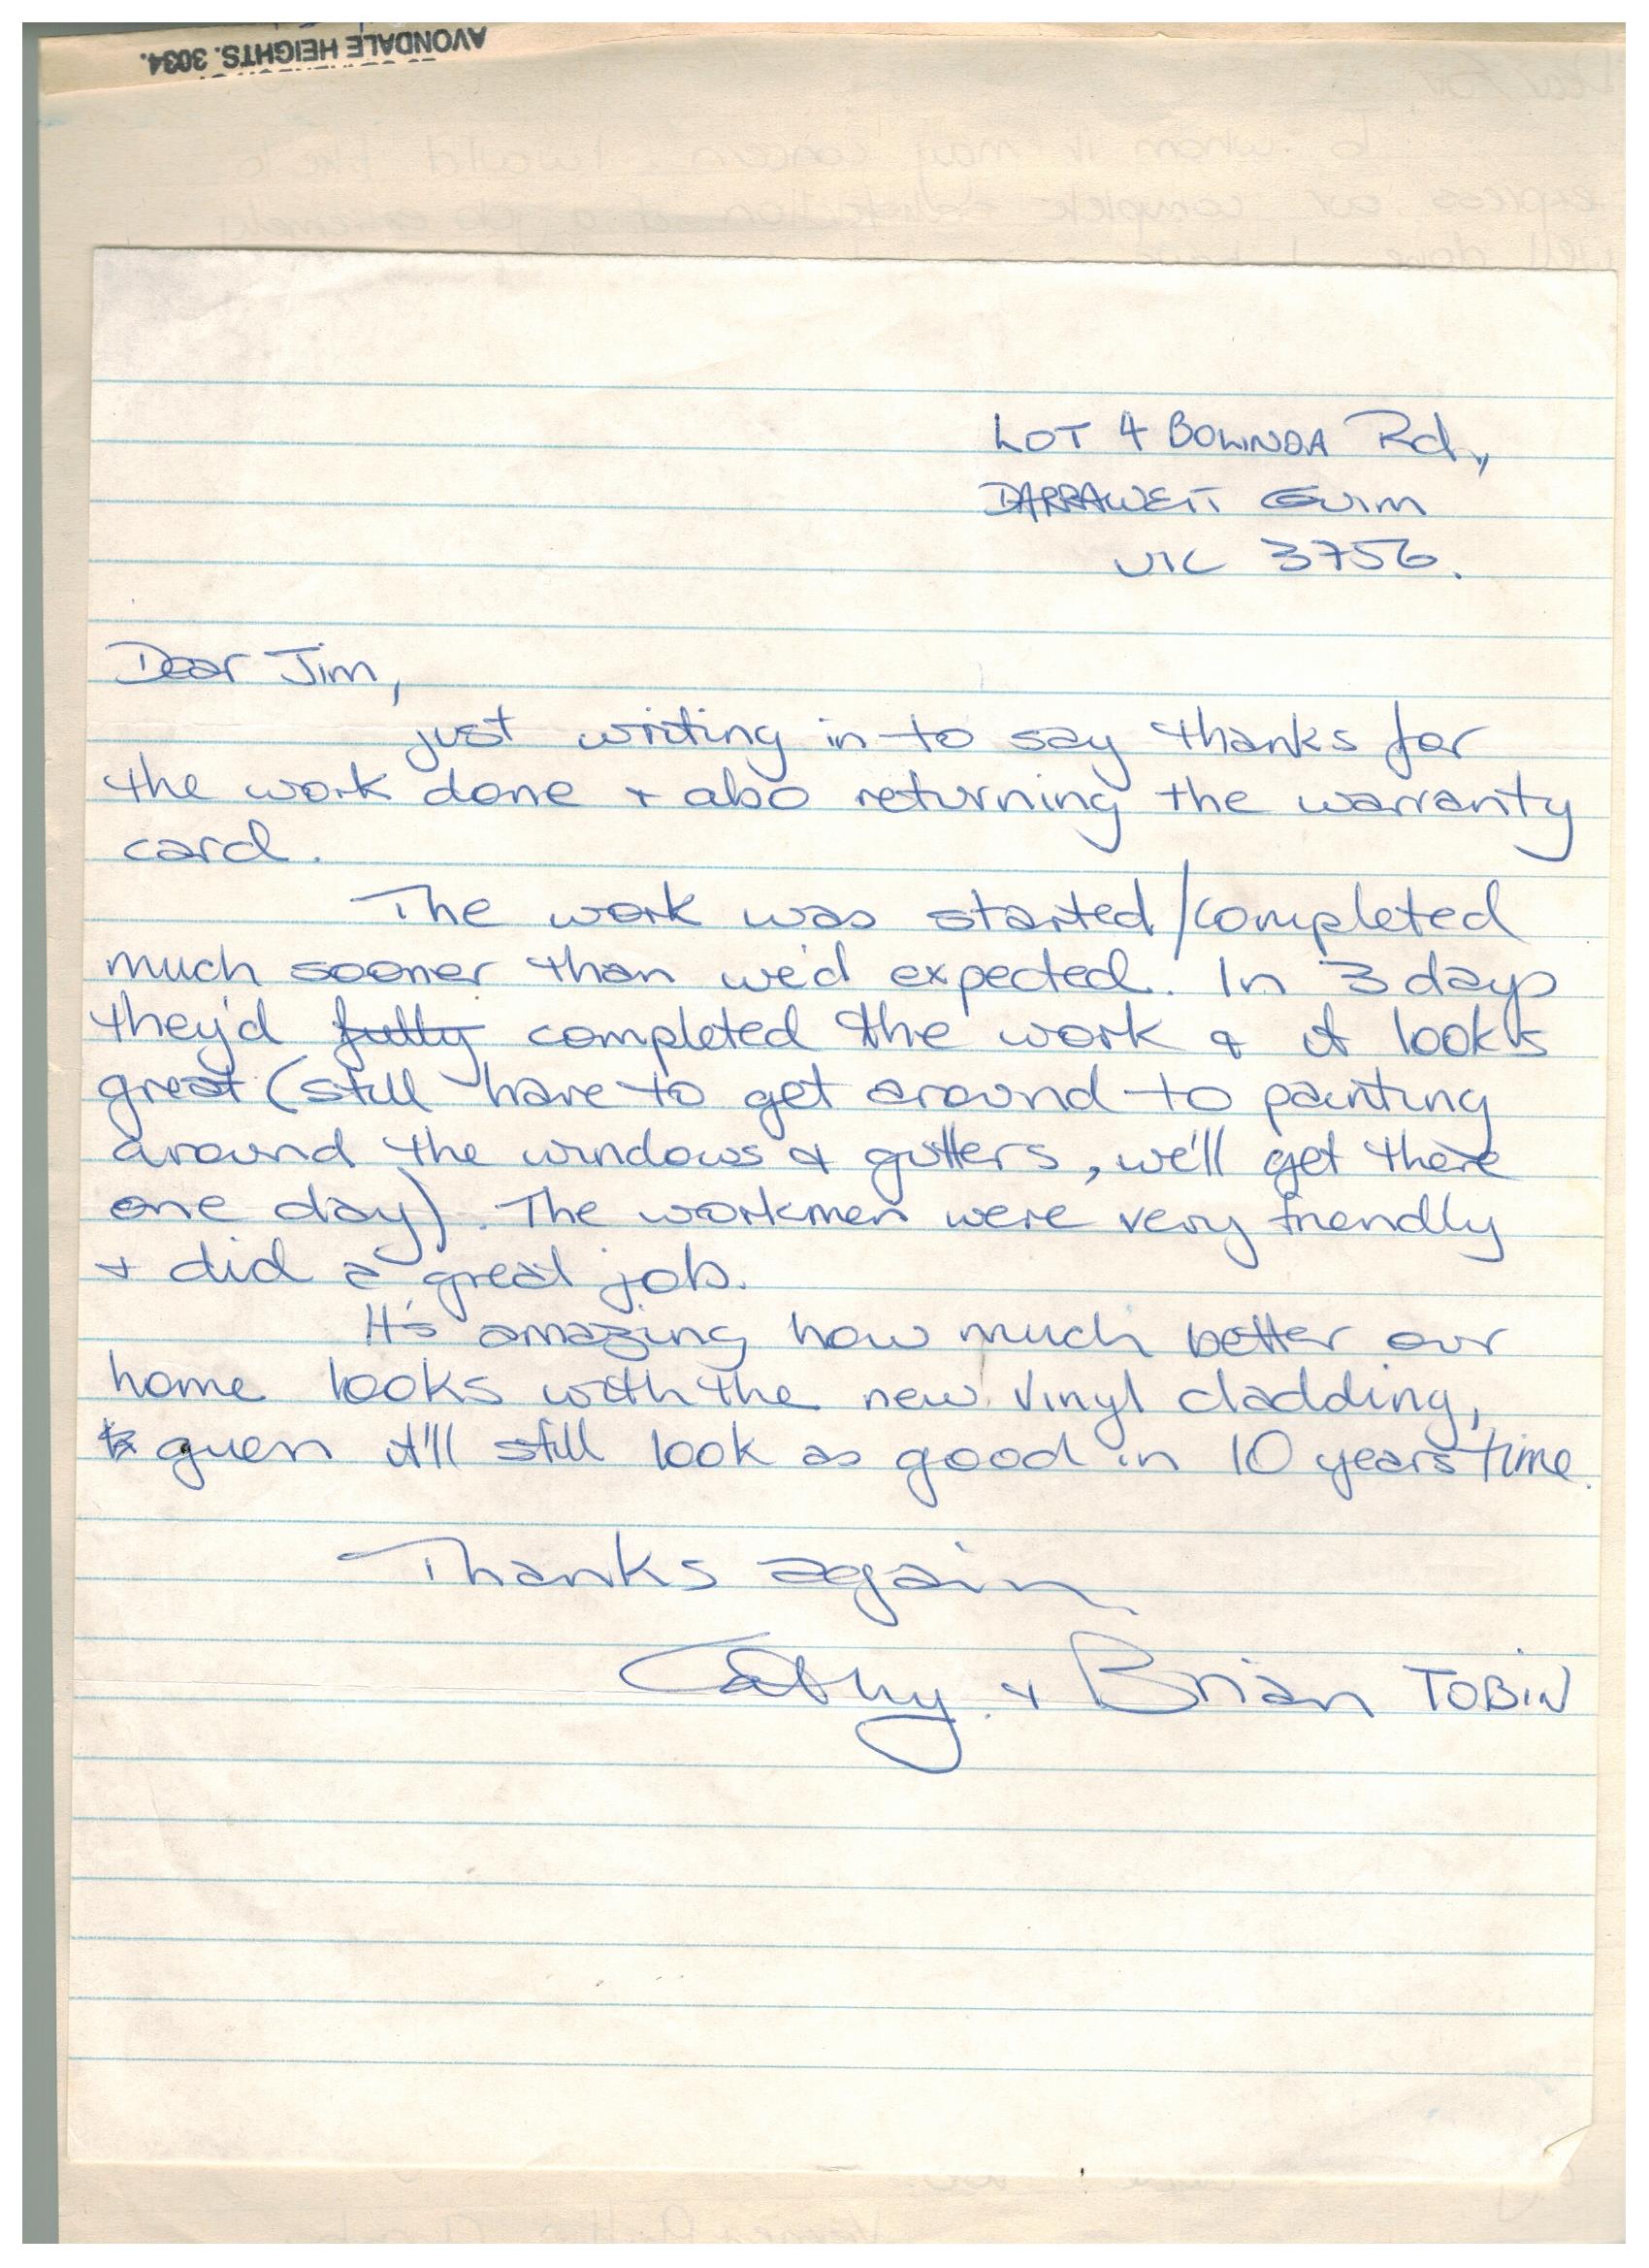 AVONDALE HEIGHTS. 3034.
Dear Sir
To whom it may concern I would like to
express our complete satisfaction of a job extremely
well done I have
LOT 4 BOLINDA Rd,
DARRAWEIT GUIM
VIC 3756.
Dear Jim,
just writing in to say thanks for
the work done + also returning the warranty
card.
The work was started/completed
much sooner than we'd expected. In 3 days
they'd fully completed the work & it looks
great (still have to get around to painting
around the windows & gutters, we'll get there
one day). The workmen were very friendly
+ did a great job.
It's amazing how much better our
home looks with the new vinyl cladding,
guess it'll still look as good in 10 years time.
Thanks again
Cathy + Brian TOBIN